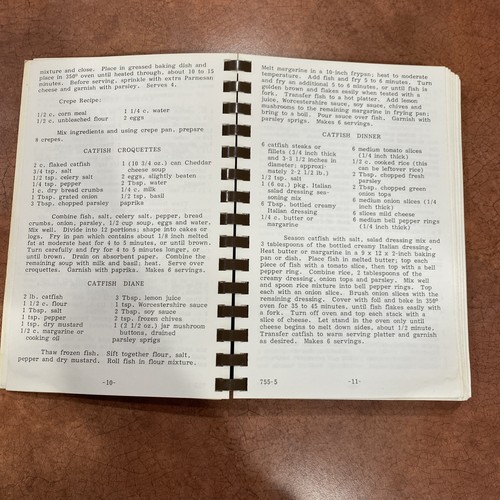 mixture and close. Place in greased baking dish and
place in 350° oven until heated through, about 10 to 15
minutes. Before serving, sprinkle with extra Parmesan
cheese and garnish with parsley. Serves 4.
Crepe Recipe:
1/2 c. corn meal
1/2 c. unbleached flour
1 1/4 c. water
2 eggs
Mix ingredients and using crepe pan, prepare
6 crepes.
CATFISH CROQUETTES
2 c. flaked catfish
3/4 tsp. salt
1/2 tsp. celery salt
1/4 tsp. pepper
1 c. dry bread crumbs
1 Tbsp. grated onion
1 Tbsp. chopped parsley
1 (10 3/4 oz.) can Cheddar
cheese soup
2 eggs, slightly beaten
2 Tbsp. water
1/4 c. milk
1/2 tsp. basil
paprika
Combine fish, salt, celery salt, pepper, bread
crumbs, onion, parsley, 1/2 cup soup, eggs and water.
Mix well. Divide into 12 portions; shape into cakes or
logs. Fry in pan which contains about 1/8 inch melted
fat at moderate heat for 4 to 5 minutes, or until brown.
Turn carefully and fry for 4 to 5 minutes longer, or
until brown. Drain on absorbent paper. Combine the
remaining soup with milk and basil; heat. Serve over
croquettes. Garnish with paprika. Makes 6 servings.
CATFISH DIANE
2 lb. catfish
1 1/2 c. flour
1 Tbsp. salt
1 tsp. pepper
1 tsp. dry mustard
1/2 c. margarine or
cooking oil
3 Tbsp. lemon juice
1 tsp. Worcestershire sauce
2 Tbsp. soy sauce
2 tsp. frozen chives
1 (2 1/2 oz.) jar mushroom
buttons, drained
parsley sprigs
Thaw frozen fish. Sift together flour, salt,
pepper and dry mustard. Roll fish in flour mixture.
-10-
Melt margarine in a 10-inch frypan; heat to moderate
temperature. Add fish and fry 5 to 6 minutes. Turn
and fry an additional 5 to 6 minutes, or until fish is
golden brown and flakes easily when tested with a
fork. Transfer fish to a hot platter. Add lemon
juice, Worcestershire sauce, soy sauce, chives and
mushrooms to the remaining margarine in frying pan;
bring to a boil. Pour sauce over fish. Garnish with
parsley sprigs. Makes 6 servings.
CATFISH DINNER
6 catfish steaks or
fillets (3/4 inch thick
and 3-3 1/2 inches in
diameter; approxi-
mately 3-2 1/2 lb.)
1/2 tsp. salt
1 (6 oz.) pkg. Italian
salad dressing sea-
soning mix
6 Tbsp. bottled creamy
Italian dressing
1/4 c. butter or
margarine
6 medium tomato slices
(1/4 inch thick)
1/2 c. cooked rice (this
can be leftover rice)
2 Tbsp. chopped fresh
parsley
3 Tbsp. chopped green
onion tops
6 medium onion slices (1/4
inch thick)
6 slices mild cheese
6 medium bell pepper rings
(1/4 inch thick)
Season catfish with salt, salad dressing mix and
3 tablespoons of the bottled creamy Italian dressing.
Heat butter or margarine in a 9 x 12 x 2-inch baking
pan or dish. Place fish in melted butter; top each
piece of fish with a tomato slice, then top with a bell
pepper ring. Combine rice, 2 tablespoons of the
creamy dressing, onion tops and parsley. Mix well
and spoon rice mixture into bell pepper rings. Top
each with an onion slice. Brush onion slices with the
remaining dressing. Cover with foil and bake in 350°
oven for 35 to 45 minutes, until fish flakes easily with
a fork. Turn off oven and top each stack with a
slice of cheese. Let stand in the oven only until
cheese begins to melt down sides, about 1/2 minute.
Transfer catfish to warm serving platter and garnish
as desired. Makes 6 servings.
755-5
-11-